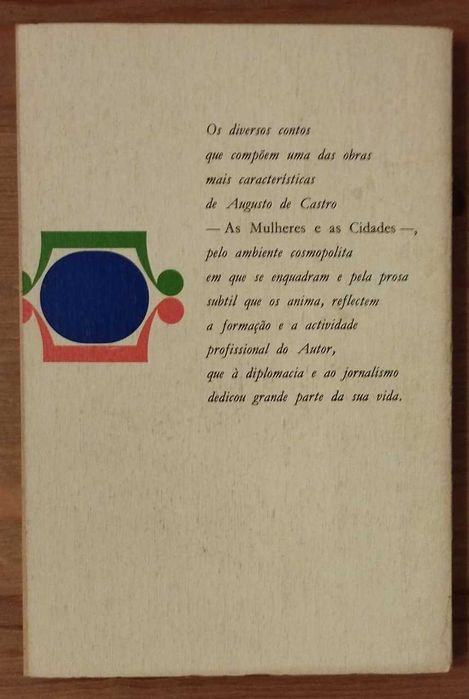 Os diversos contos
que compõem uma das obras
mais características
de Augusto de Castro
— As Mulheres e as Cidades —,
pelo ambiente cosmopolita
em que se enquadram e pela prosa
subtil que os anima, reflectem
a formação e a actividade
profissional do Autor,
que à diplomacia e ao jornalismo
dedicou grande parte da sua vida.